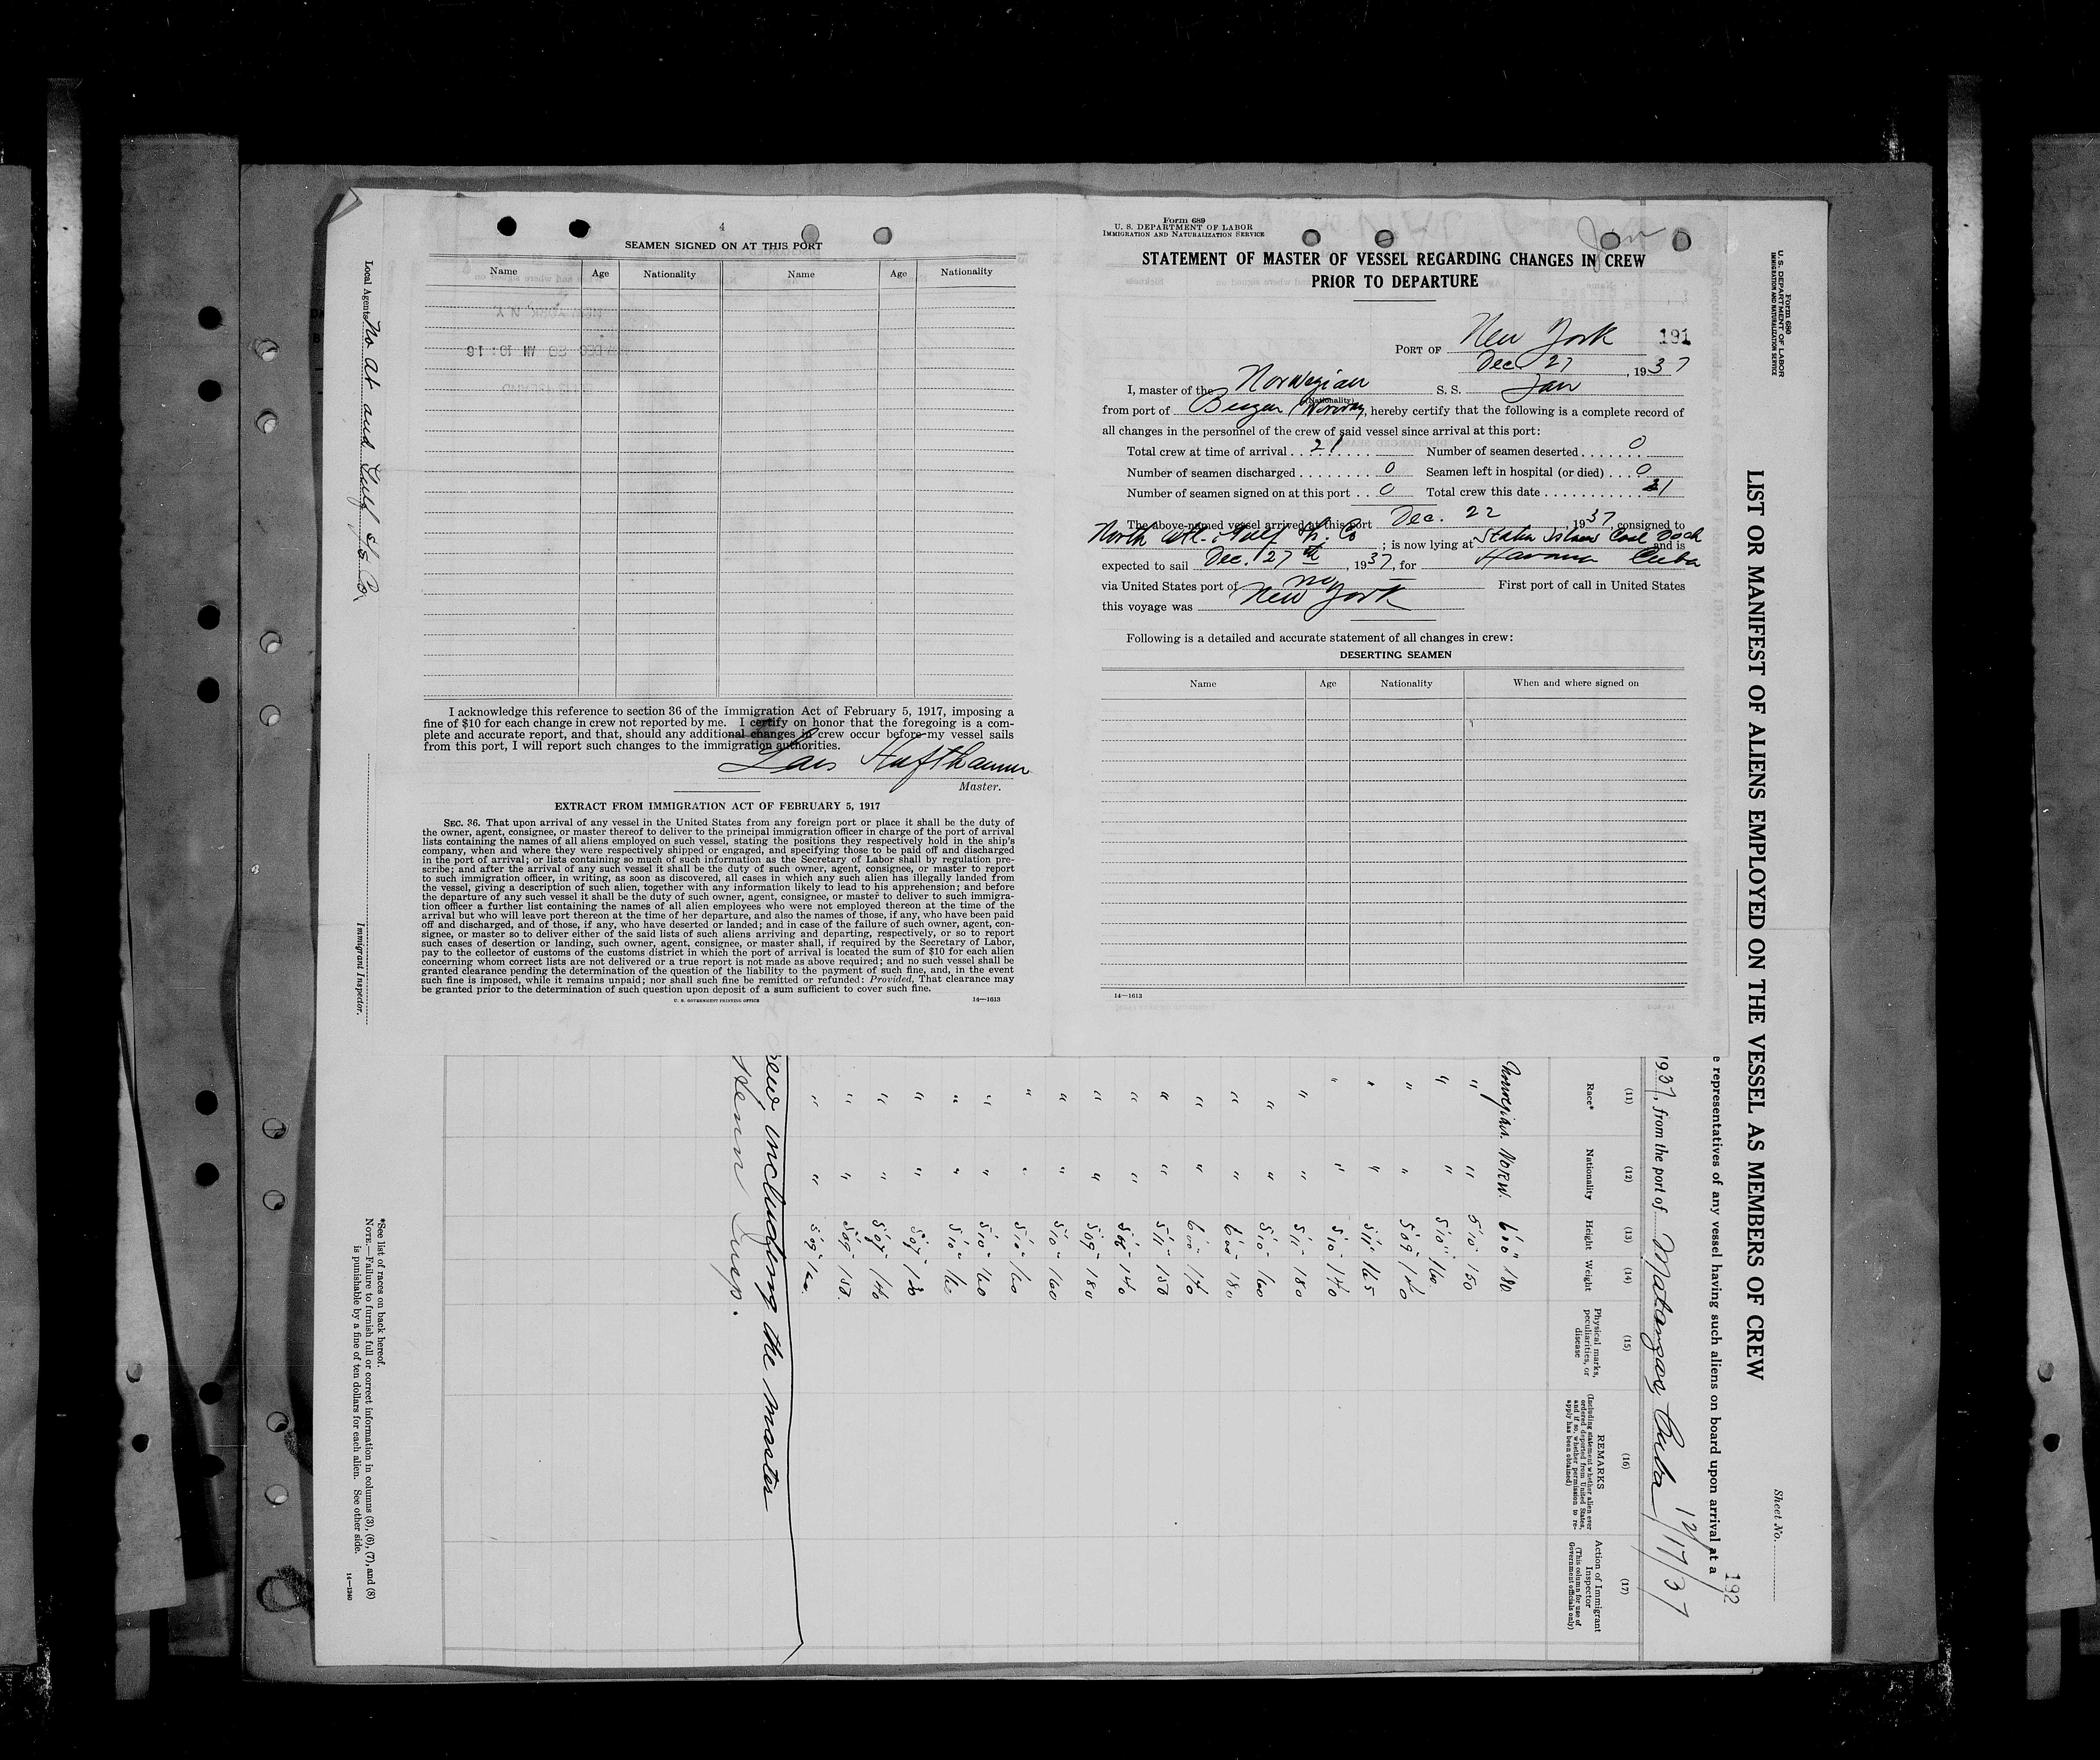 4
SEAMEN SIGNED ON AT THIS PORT
Name Age Nationality Name Age Nationality
I acknowledge this reference to section 36 of the Immigration Act of February 5, 1917, imposing a
fine of $10 for each change in crew not reported by me. I certify on honor that the foregoing is a com-
plete and accurate report, and that, should any additional changes in crew occur before my vessel sails
from this port, I will report such changes to the immigration authorities.
Master.
EXTRACT FROM IMMIGRATION ACT OF FEBRUARY 5, 1917
SEC. 36. That upon arrival of any vessel in the United States from any foreign port or place it shall be the duty of
the owner, agent, consignee, or master thereof to deliver to the principal immigration officer in charge of the port of arrival
lists containing the names of all aliens employed on such vessel, stating the positions they respectively hold in the ship's
company, when and where they were respectively shipped or engaged, and specifying those to be paid off and discharged
in the port of arrival; or lists containing so much of such information as the Secretary of Labor shall by regulation pre-
scribe; and after the arrival of any such vessel it shall be the duty of such owner, agent, consignee, or master to report
to such immigration officer, in writing, as soon as discovered, all cases in which any such alien has illegally landed from
the vessel, giving a description of such alien, together with any information likely to lead to his apprehension; and before
the departure of any such vessel it shall be the duty of such owner, agent, consignee, or master to deliver to such immigra-
tion officer a further list containing the names of all alien employees who were not employed thereon at the time of the
arrival but who will leave port thereon at the time of her departure, and also the names of those, if any, who have been paid
off and discharged, and of those, if any, who have deserted or landed; and in case of the failure of such owner, agent, con-
signee, or master so to deliver either of the said lists of such aliens arriving and departing, respectively, or so to report
such cases of desertion or landing, such owner, agent, consignee, or master shall, if required by the Secretary of Labor,
pay to the collector of customs of the customs district in which the port of arrival is located the sum of $10 for each alien
concerning whom correct lists are not delivered or a true report is not made as above required; and no such vessel shall be
granted clearance pending the determination of the question of the liability to the payment of such fine, and, in the event
such fine is imposed, while it remains unpaid; nor shall such fine be remitted or refunded: Provided, That clearance may
be granted prior to the determination of such question upon deposit of a sum sufficient to cover such fine.
U. S. GOVERNMENT PRINTING OFFICE 14—1613
Form 689
U. S. DEPARTMENT OF LABOR
IMMIGRATION AND NATURALIZATION SERVICE
STATEMENT OF MASTER OF VESSEL REGARDING CHANGES IN CREW
PRIOR TO DEPARTURE
PORT OF New York 191
Dec 27, 1937
I, master of the Norwegian S. S. Jan
(Nationality)
from port of Norway, hereby certify that the following is a complete record of
all changes in the personnel of the crew of said vessel since arrival at this port:
Total crew at time of arrival . . 21 Number of seamen deserted . . . . . . 0
Number of seamen discharged . . . . . . . . 0 Seamen left in hospital (or died) . . . 0
Number of seamen signed on at this port . . 0 Total crew this date . . . . . . . . . . . 21
The above-named vessel arrived at this port Dec. 22, 1937, consigned to
North Atl. & Gulf Co; is now lying at Staten Island Coal Dock and is
expected to sail Dec. 27th, 1937, for Havana Cuba
via United States port of no First port of call in United States
this voyage was New York
Following is a detailed and accurate statement of all changes in crew:
DESERTING SEAMEN
Name Age Nationality When and where signed on
14—1613
Form 680
U. S. DEPARTMENT OF LABOR
IMMIGRATION AND NATURALIZATION SERVICE
Sheet No.
LIST OR MANIFEST OF ALIENS EMPLOYED ON THE VESSEL AS MEMBERS OF CREW
192
e representatives of any vessel having such aliens on board upon arrival at a
1937, from the port of Matanzas, Cuba 12/17/37
(11) (12) (13) (14) (15) (16) (17)
Race* Nationality Height Weight Physical marks, peculiarities, or disease REMARKS (Including statement whether alien ever ordered deported from United States, and if so, whether permission to re-apply has been obtained) Action of Immigrant Inspector (This column for use of Government officials only)
Norwegian. Norw. 6'00" 180
" " 5'10" 150
" " 5'10" 160
" " 5'09" 140
" " 5'11" 165
" " 5'10" 140
" " 5'11" 180
" " 5'10" 160
" " 6'00" 180
" " 6'00" 140
" " 5'11" 150
" " 5'06" 140
" " 5'09" 180
" " 5'10" 160
" " 5'10" 160
" " 5'10" 160
" " 5'10" 160
" " 5'07"
" " 5'07" 140
" " 5'09" 150
" " 5'09"
crew including the master
Insp.
*See list of races on back hereof.
NOTE.—Failure to furnish full or correct information in columns (3), (6), (7), and (8)
is punishable by a fine of ten dollars for each alien. See other side.
14—1240
Local Agents No At and Gulf S/S Co
Immigrant Inspector.